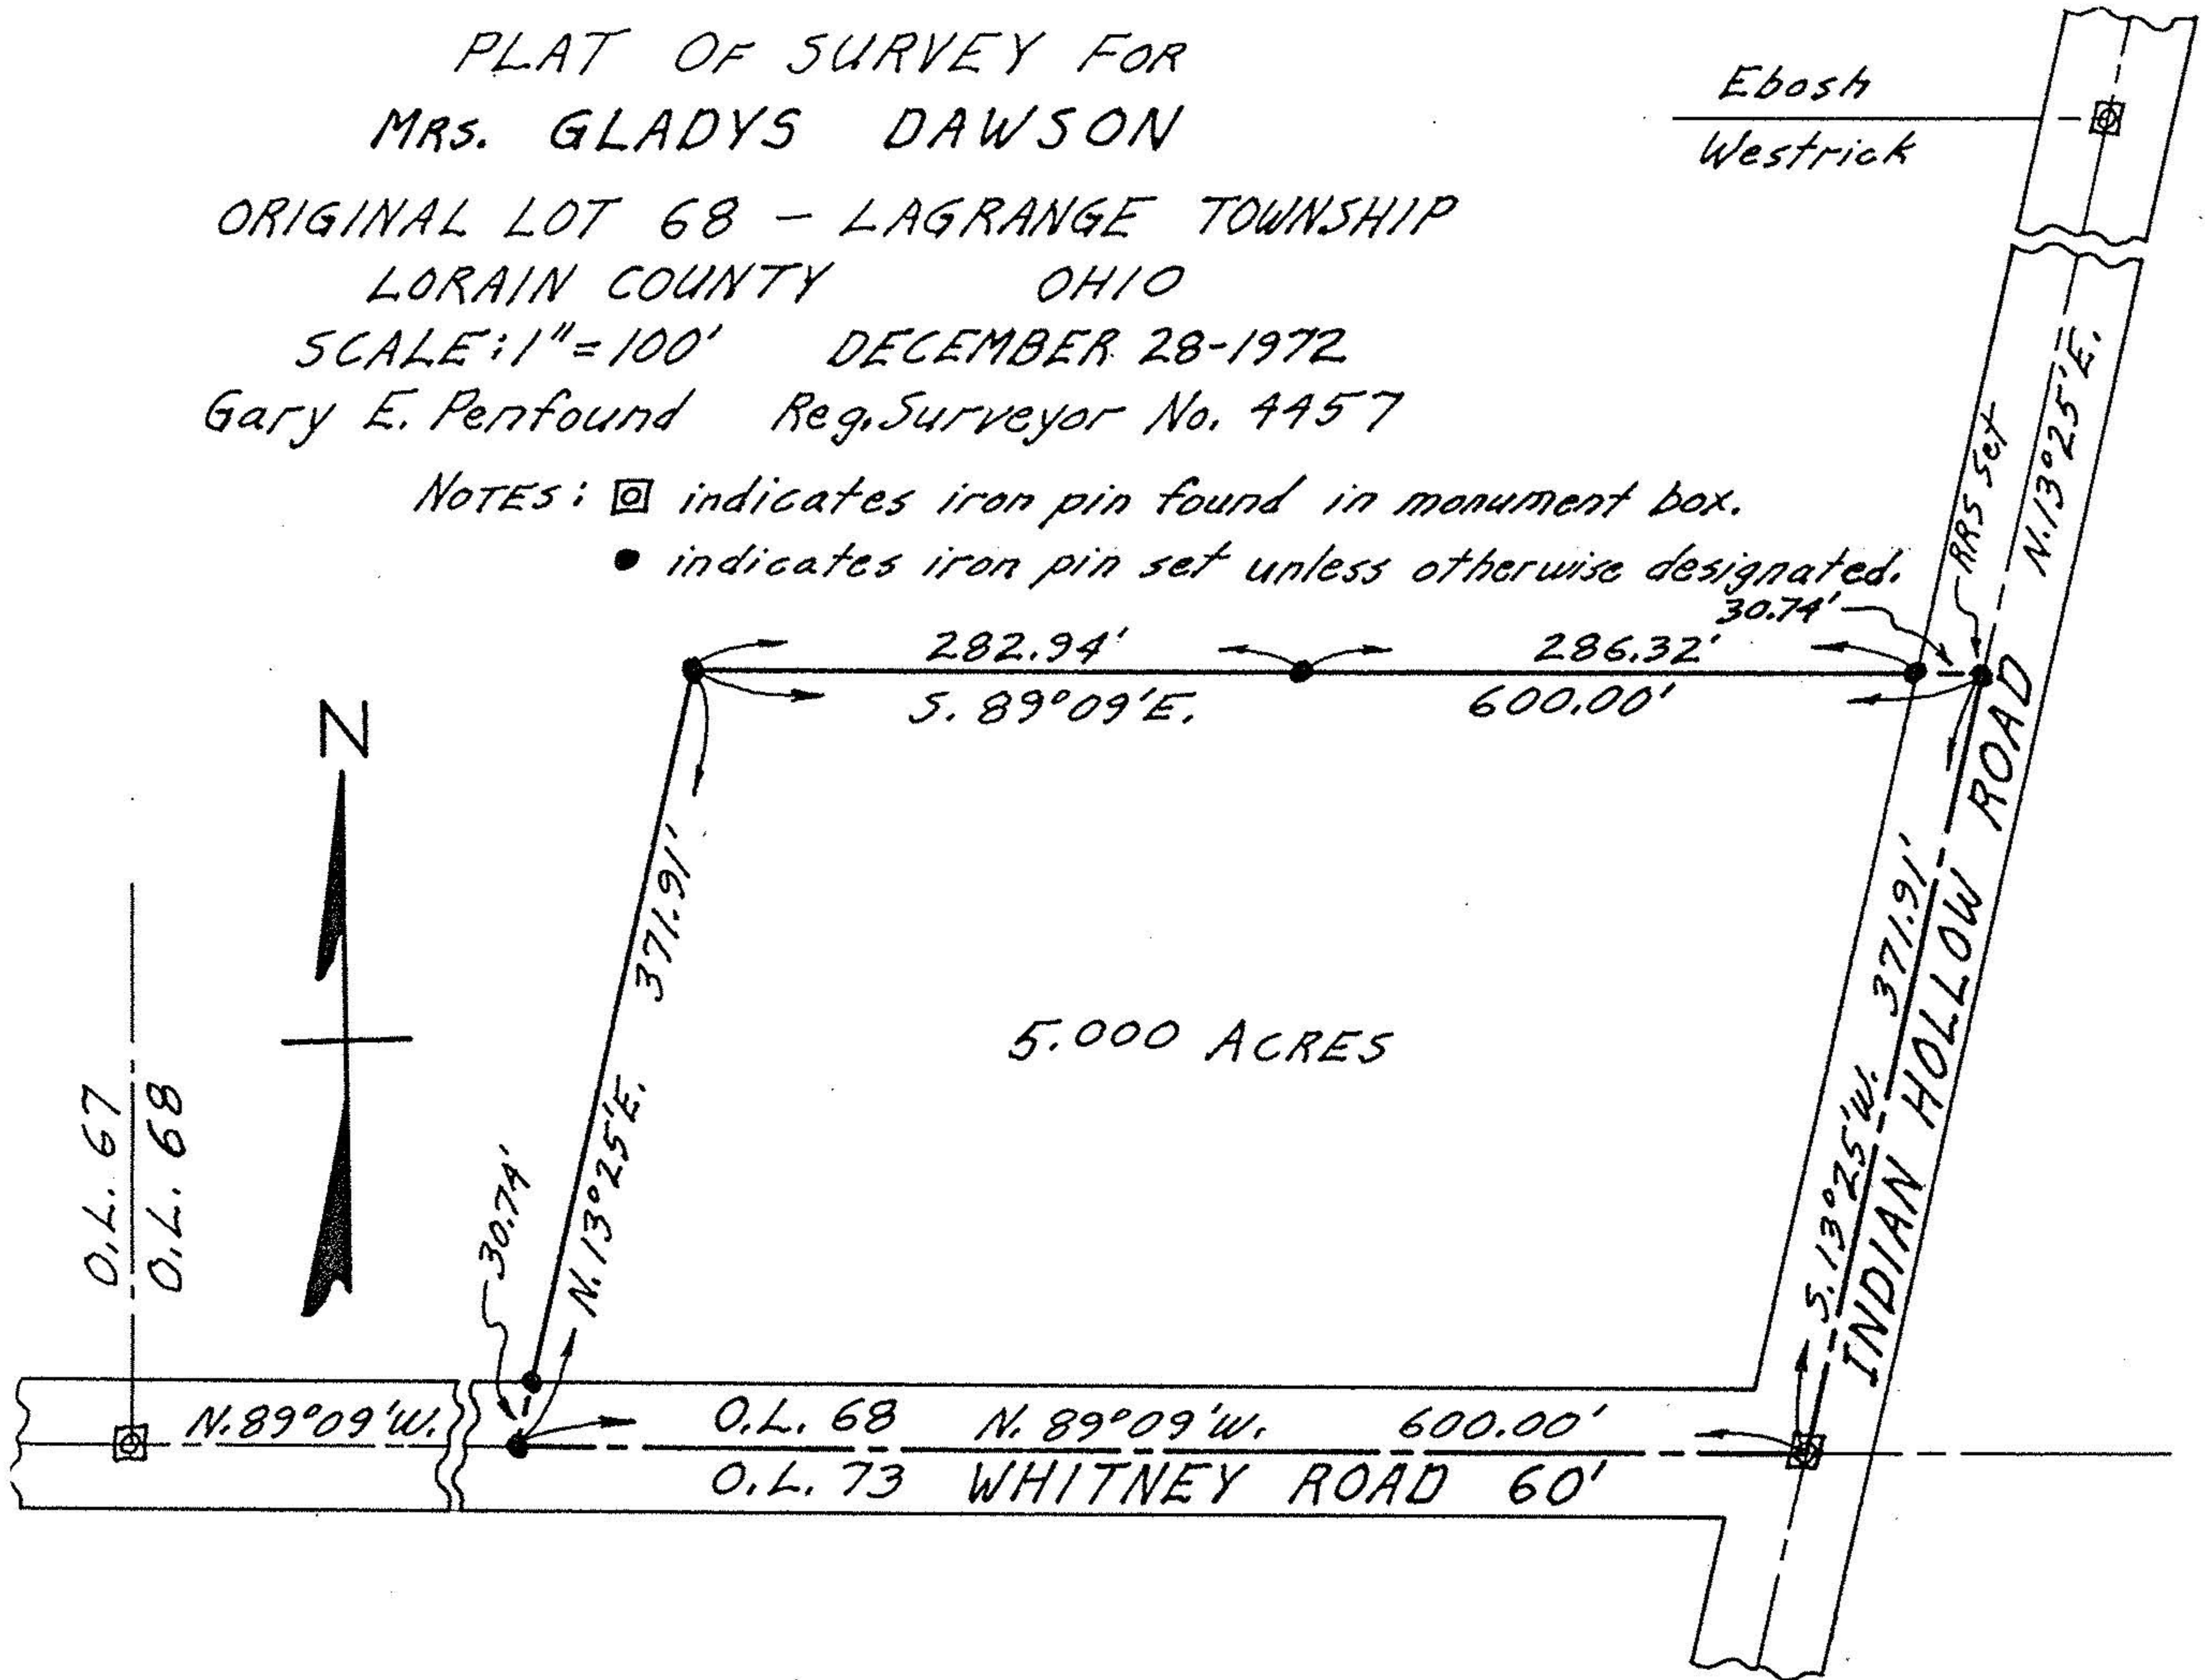 PLAT OF SURVEY FOR
MRS. GLADYS DAWSON
ORIGINAL LOT 68 – LAGRANGE TOWNSHIP
LORAIN COUNTY OHIO
SCALE: 1"=100' DECEMBER 28-1972
Gary E. Penfound Reg. Surveyor No. 4457
NOTES: indicates iron pin found in monument box.
indicates iron pin set unless otherwise designated.
Ebosh
Westrick
RRS Set
N. 13°25'E.
30.74'
282.94'
286.32'
S. 89°09'E.
600.00'
N
371.91'
N. 13°25'E.
5.000 ACRES
S. 13°25'W. 371.91'
INDIAN HOLLOW ROAD
O.L. 67
O.L. 68
30.74'
N. 89°09'W.
O.L. 68 N. 89°09'W. 600.00'
O.L. 73 WHITNEY ROAD 60'